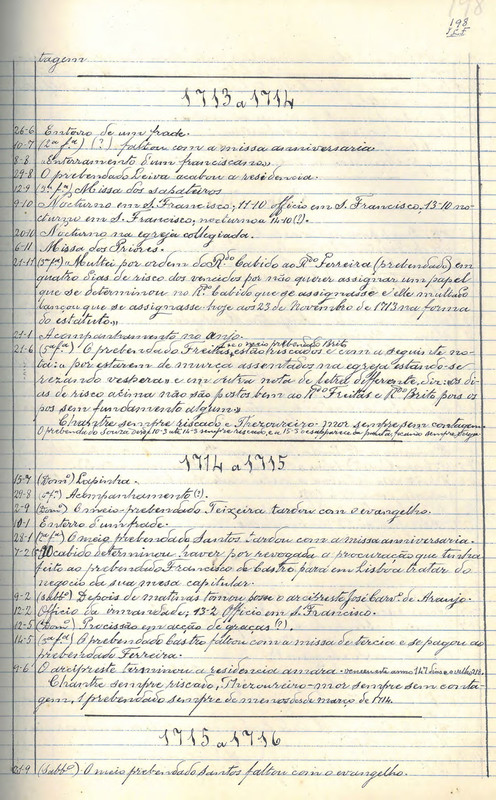 198
tagem
1713 a 1714
26-6 Enterro de um frade.
10-7 (2ª fª) (?) faltou com a missa anniversaria
8-8 «Enterramento d'um franciscano»
29-8 O prebendado Leiva acabou a residencia.
12-9 Missa dos sabateiros
9-10 Nocturno em S. Francisco; 11-10 officio em S. Francisco, 13-10 no-
cturno em S. Francisco, nocturno a 14-10 (?).
20-10 Nocturno na egreja collegiada.
6-11 Missa dos Priores.
21-11 «Multei por ordem do Rdo Cabido ao Rdo Ferreira (prebendado) em
quatro dias de risco dos vencidos por não querer assignar um papel
que se determinou no Rdo Cabido que se assignasse e elle multado
lançou que se assignasse hoje aos 23 de Novembro de 1713 na forma
do estatuto.»
21-1 Acompanhamento no anjo.
e o meio prebendado Brito
21-6 (5ª fª) O prebendado Freitas, estão riscados e com a seguinte no-
ta: a por estarem de murça assentados na egreja estando-se
rezando vesperas e em outra nota de letra differente, diz: «os di-
as de risco acima não são postos bem ao Rdo Freitas e Rdo Brito pois os
pos sem fundamento algum»
Chantre sempre riscado e Thezoureiro-mor sempre sem contagem.
O prebendado Souza desde 10-3 até 14-3 sempre riscado, e a 15-3 desapparece da pauta, ficando sempre
1714 a 1715
15-7 (Domº) Lapinha.
29-8 Acompanhamento (?).
2-9 (Domº) O meio-prebendado Teixeira tardou com o evangelho.
10-1 Enterro d'um frade.
28-1 (2ª fª) O meio prebendado Santos tardou com a missa anniversaria.
7-2 O cabido determinou haver por revogada a procuração que tinha
feito ao prebendado Francisco de Castro para em Lisboa tratar do
negocio da sua mesa capitular.
9-2 (sabbº) Depois de matinas tomou posse o arcipreste José Carvº de Araujo.
12-2 Officio da irmandade; 13-2 Officio em S. Francisco.
12-5 (Domº) Procissão em acção de graças (?).
14-5 O prebendado Castro faltou com a missa de tercia e se pagou ao
prebendado Ferreira.
9-6 O arcipreste terminou a residencia amara
Chantre sempre riscado, Thezoureiro-mor sempre sem conta-
gem, 1 prebendado sempre de menos desde março de 1714.
1715 a 1716
21-9 (sabbº) O meio prebendado Santos faltou com o evangelho.